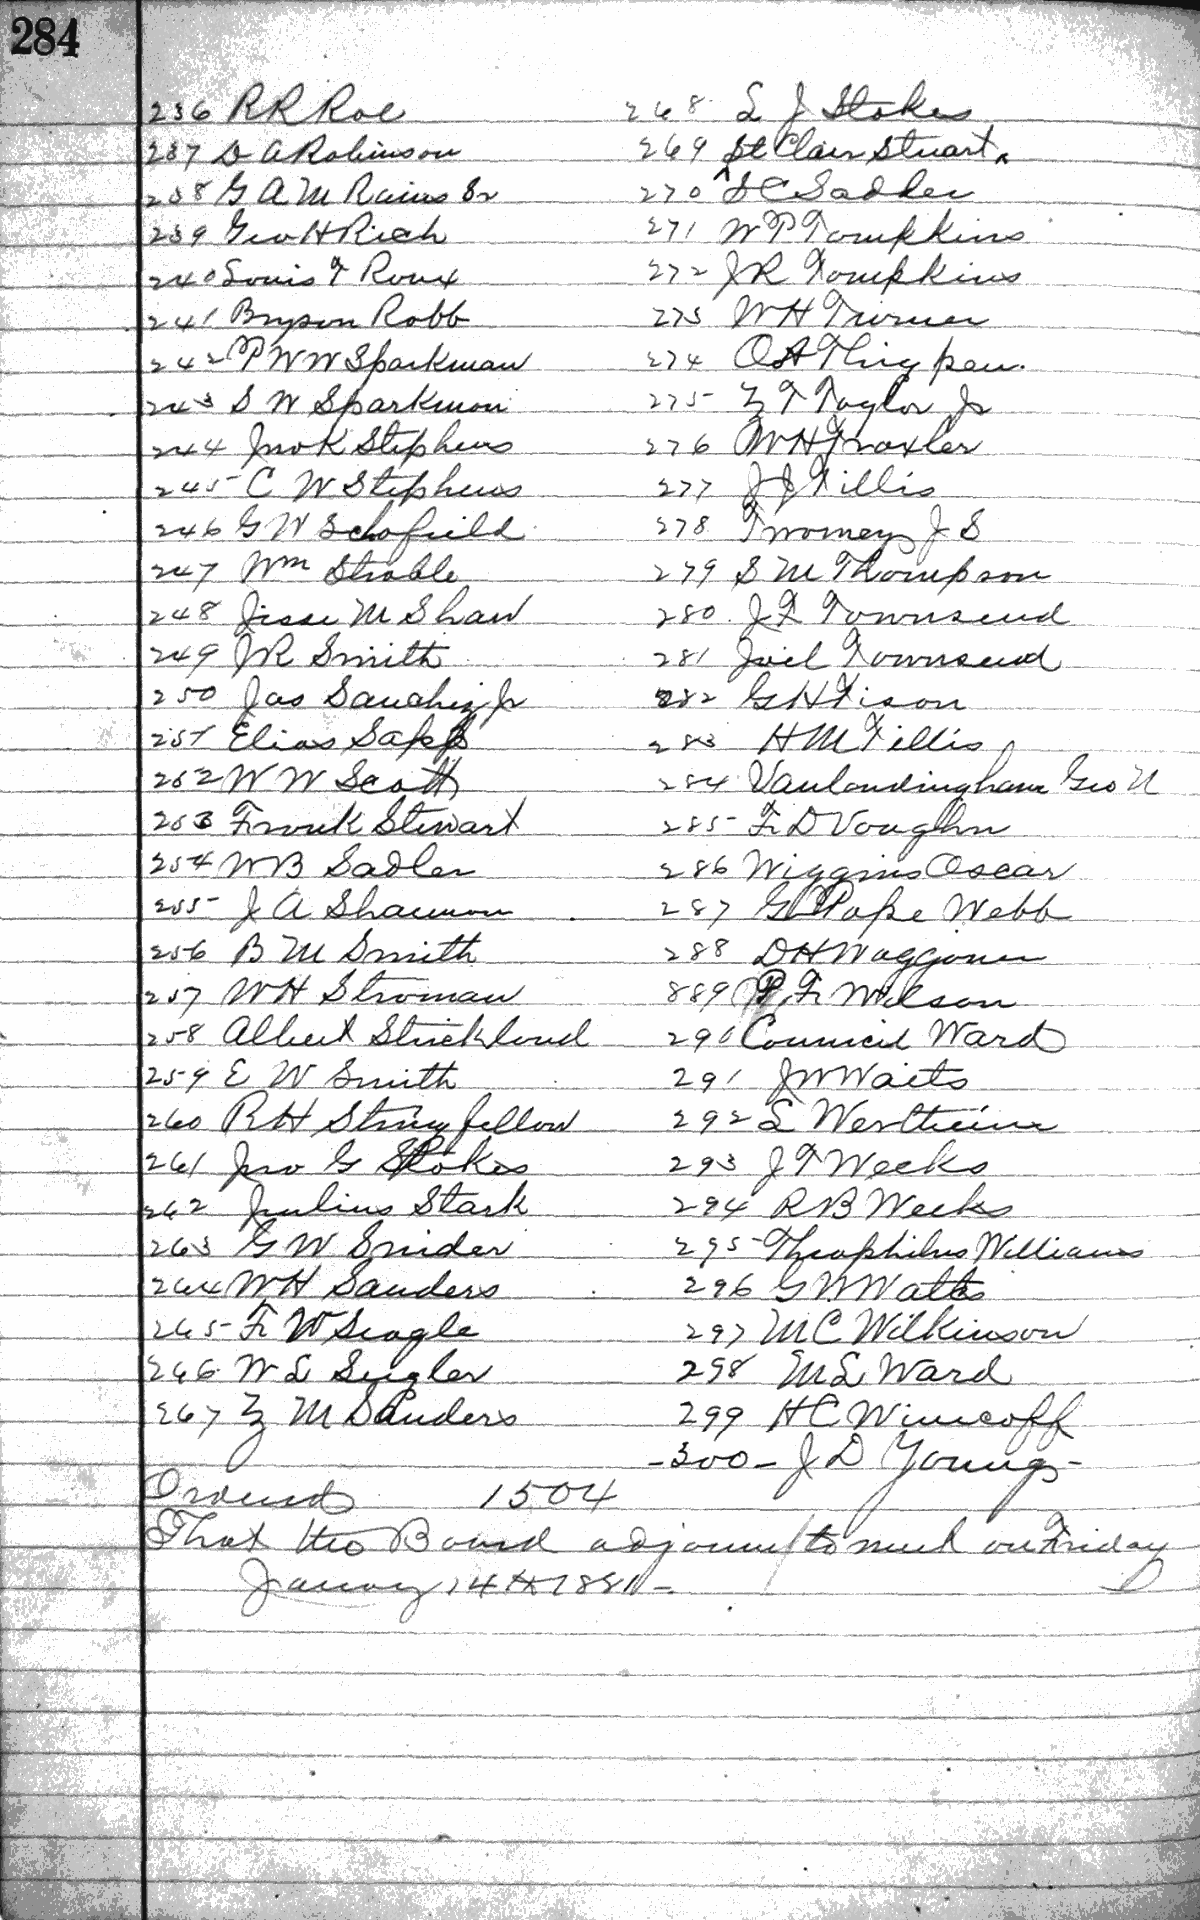 284
236 R R Roe
237 D A Robinson
238 G A M Rains Sr
239 Geo H Rich
240 Louis F Roux
241 Bryson Robb
242 P W W Sparkman
243 S W Sparkman
244 Jno K Stephens
245 C W Stephens
246 G W Schofield
247 Wm Strable
248 Jesse M Shaw
249 J R Smith
250 Jas Sanchez Jr
251 Elias Sapp
252 W W Scott
253 Frank Stewart
254 W B Sadler
255 J A Shannon
256 B M Smith
257 W H Stroman
258 Albert Strickland
259 E W Smith
260 R H Stringfellow
261 Jno G Stokes
262 Julius Stark
263 G W Snider
264 W H Sanders
265 F W Seagle
266 W L Seigler
267 Z M Sanders
268 L J Stokes
269 St Clair Stuart
270 S C Sadler
271 W P Tompkins
272 J R Tompkins
273 W H Turner
274 O A Thigpen
275 Z T Taylor Jr
276 W H Traxler
277 J J Tillis
278 Twomey J S
279 S M Thompson
280 J F Townsend
281 Joel Townsend
282 G H Tison
283 H M Tillis
284 Vanlandingham Geo N
285 F D Vaughn
286 Wiggins Oscar
287 G Pope Webb
288 D H Waggoner
889 P. F. Wilson
290 Council Ward
291 J W Waits
292 L Wertheim
293 J T Weeks
294 R B Weeks
295 Theophilus Williams
296 G W Watts
297 M C Wilkinson
298 M L Ward
299 H C Winecoff
-300- J D Young-
Ordered 1504
That the Board adjourn to meet on Friday
January 14th 1881-